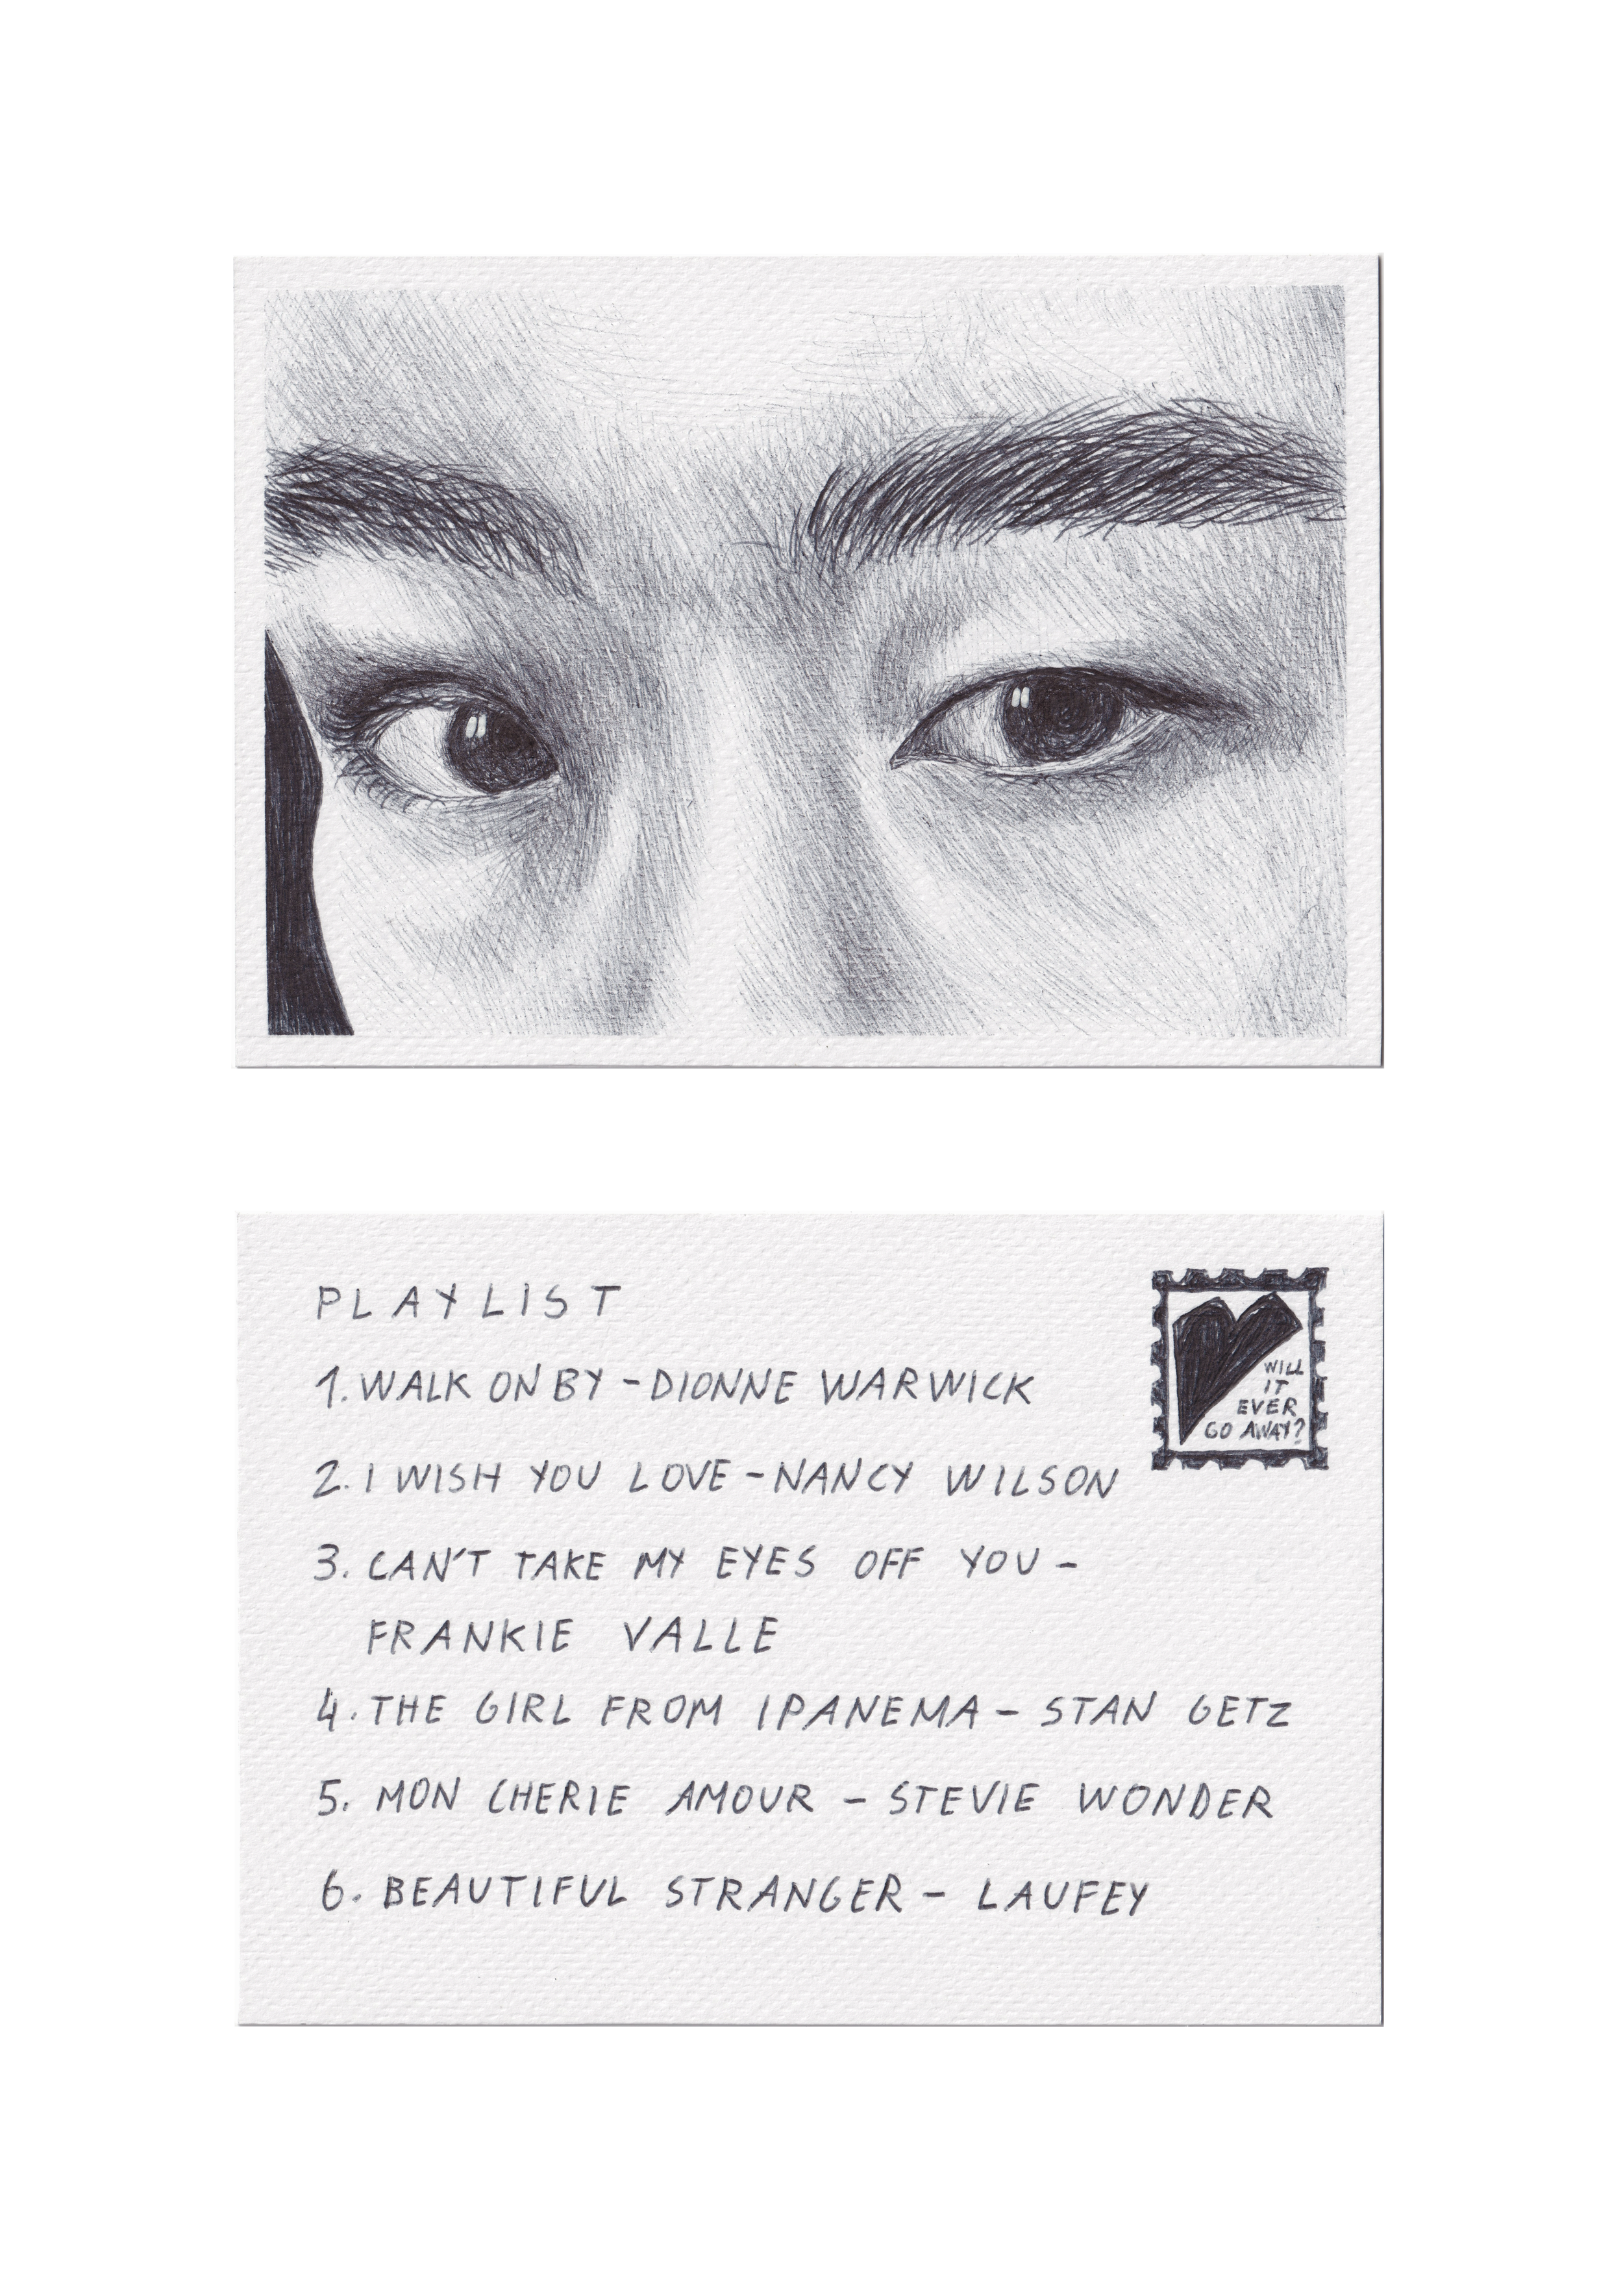 PLAYLIST
1. WALK ON BY - DIONNE WARWICK
2. I WISH YOU LOVE - NANCY WILSON
3. CAN'T TAKE MY EYES OFF YOU -
FRANKIE VALLE
4. THE GIRL FROM IPANEMA - STAN GETZ
5. MON CHERIE AMOUR - STEVIE WONDER
6. BEAUTIFUL STRANGER - LAUFEY
WILL
IT
EVER
GO AWAY?